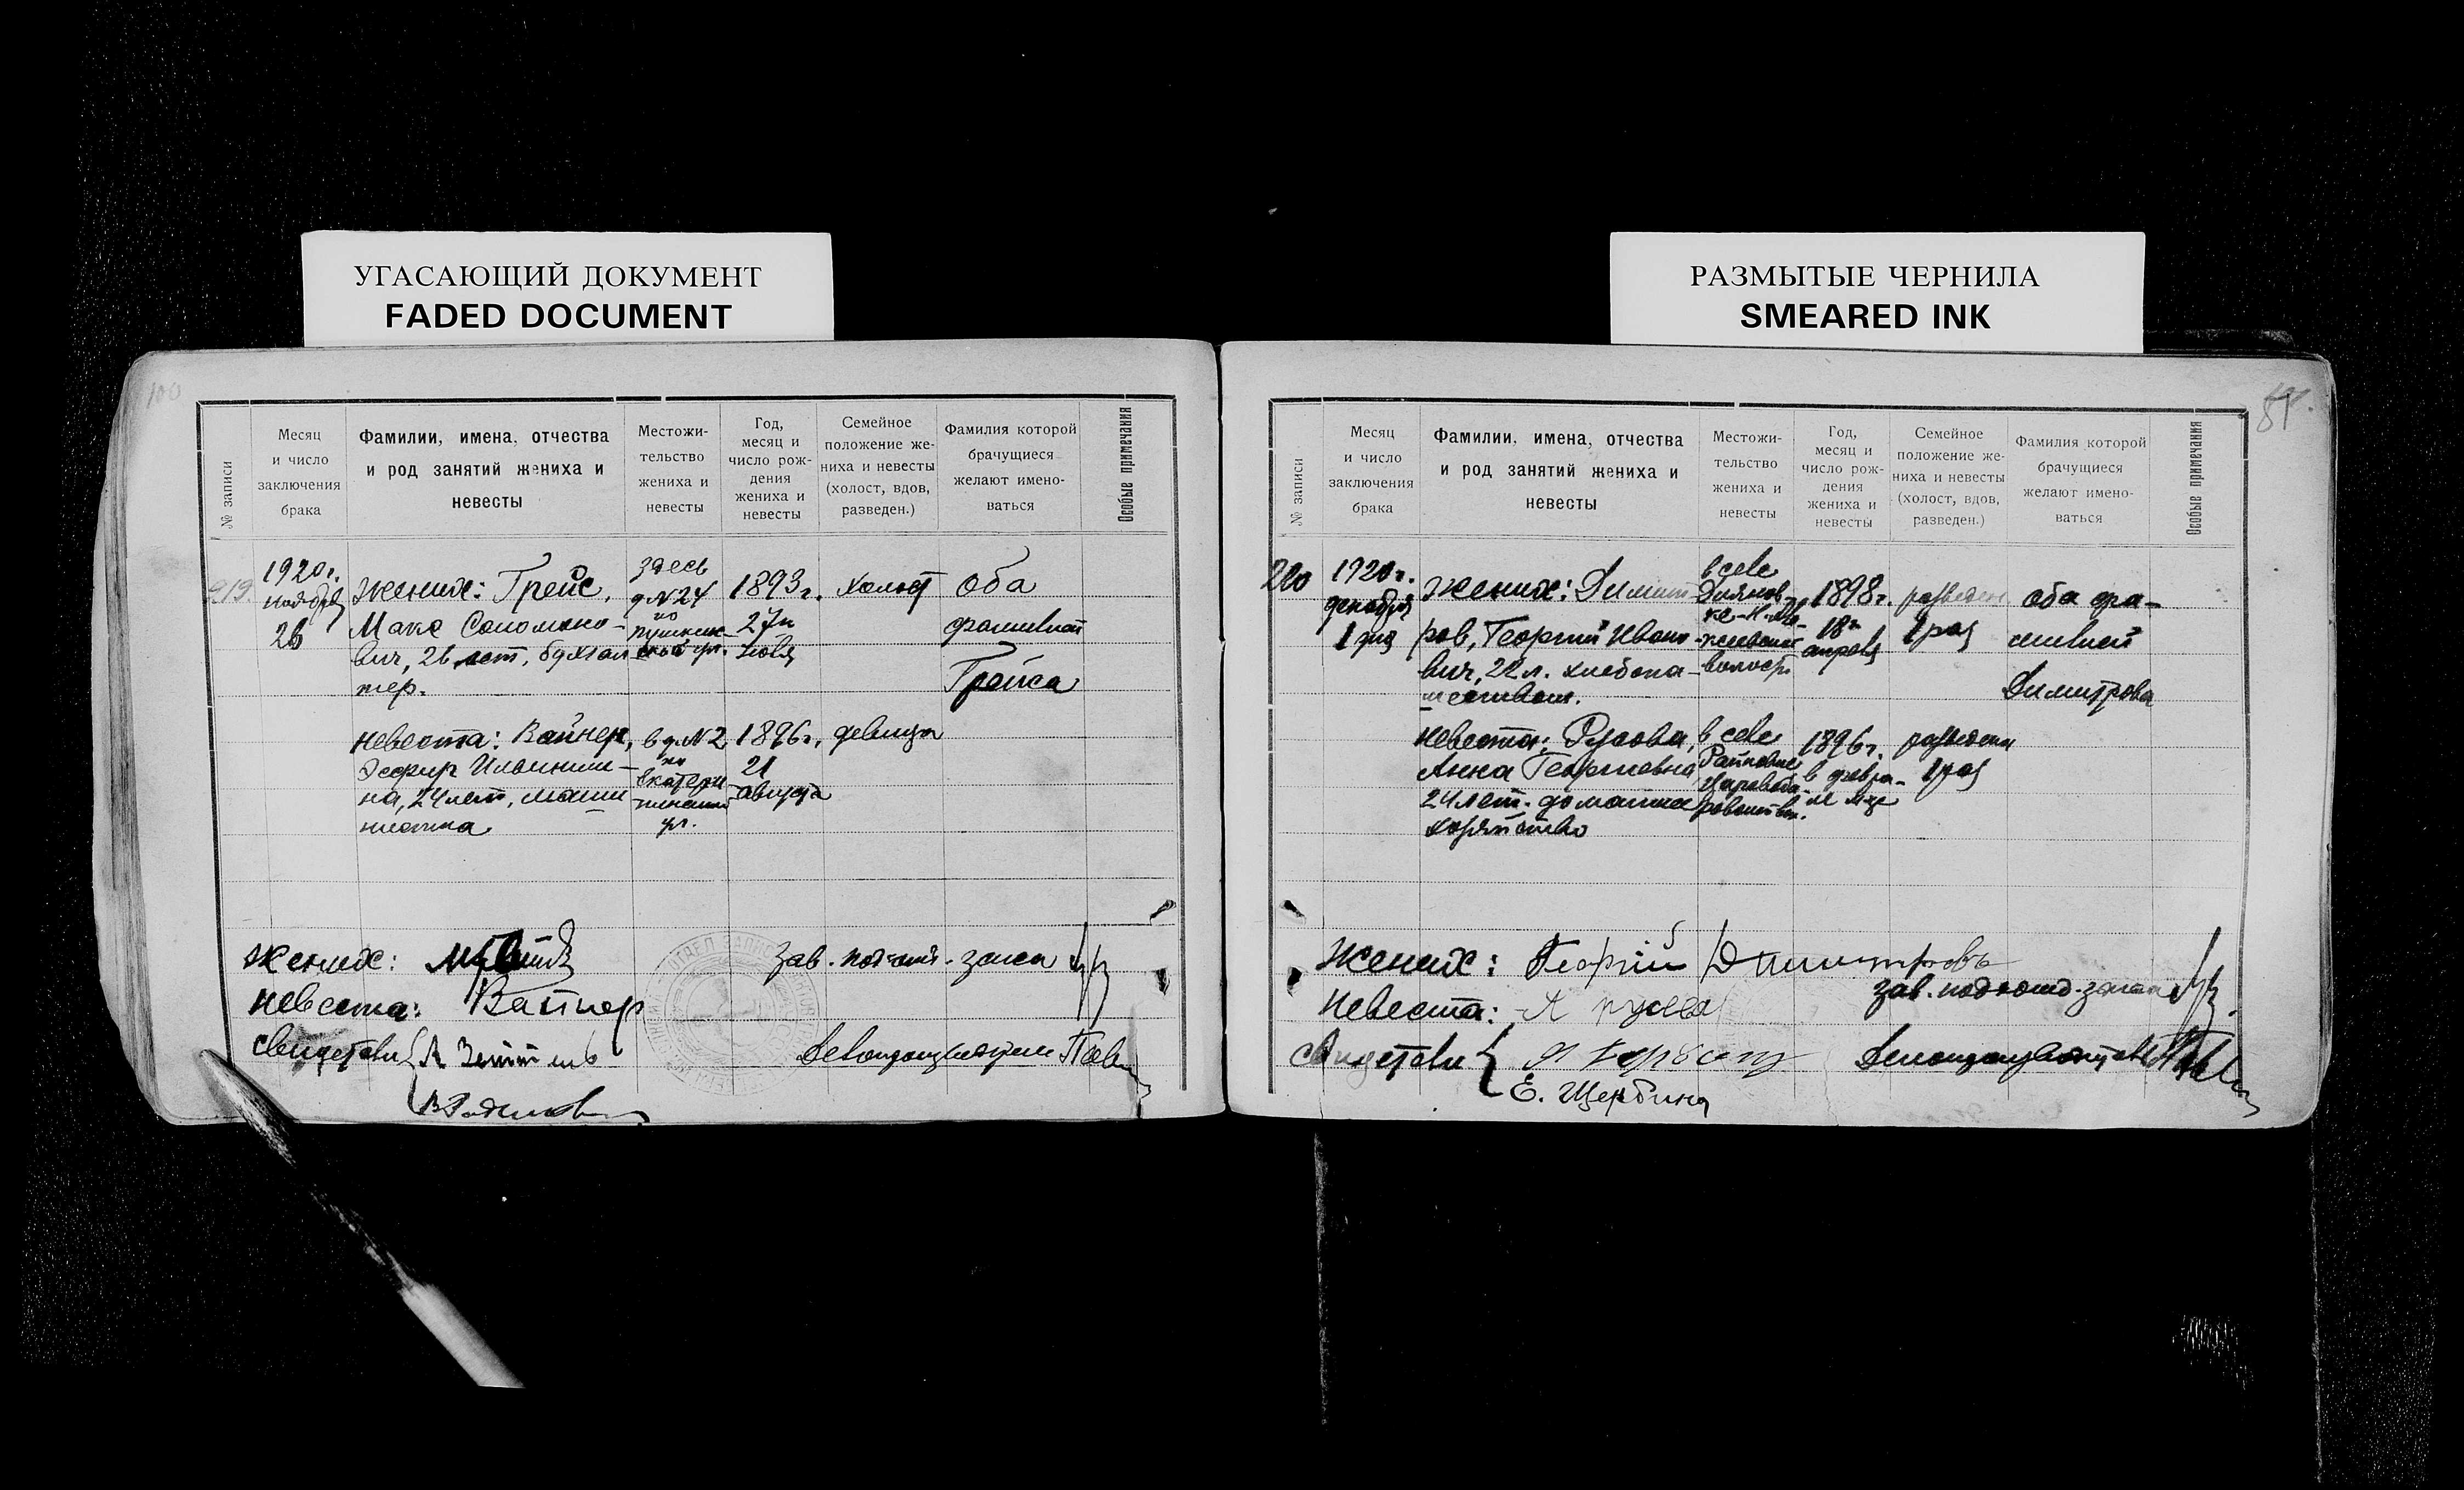 УГАСАЮЩИЙ ДОКУМЕНТ
FADED DOCUMENT
РАЗМЫТЫЕ ЧЕРНИЛА
SMEARED INK
100
№ записи
Месяц
и число
заключения
брака
Фамилии, имена, отчества
и род занятий жениха и
невесты
Местожи-
тельство
жениха и
невесты
Год,
месяц и
число рож-
дения
жениха и
невесты
Семейное
положение же-
ниха и невесты
(холост, вдов,
разведен.)
Фамилия которой
брачущиеся
желают имено-
ваться
Особые примечания
219.
1920г.
ноября
26
жених: Грейс,
Макс Соломоно-
вич, 26 лет, бухгал
тер.
здесь
д. N 24
по
пушкин-
ской ул.
1893г.
27го
июля
холост
оба
фамилией
Грейса
невеста: Вайнер,
Эсфирь Ильинич-
на, 24 лет, маши
нистка
в д. N 2
по
Екатери-
нинской
ул.
1896г.
21
августа
девица
жених:
невеста: Вайнер
свидетели
зав. подотд. загса
Делопроизводитель
81
№ записи
Месяц
и число
заключения
брака
Фамилии, имена, отчества
и род занятий жениха и
невесты
Местожи-
тельство
жениха и
невесты
Год,
месяц и
число рож-
дения
жениха и
невесты
Семейное
положение же-
ниха и невесты
(холост, вдов,
разведен.)
Фамилия которой
брачущиеся
желают имено-
ваться
Особые примечания
220
1920г.
декабря
1 дня
жених: Димит-
ров, Георгий Ивано-
вич, 22 л. хлебопа-
шество.
в селе
волости
1898г.
18го
апреля
разведен
1 раз
оба фа-
милией
Димитрова
невеста: Русова,
Анна Георгиевна
24 лет. домашнее
хозяйство
в селе
1896г.
в февра-
ле м-це
разведена
1 раз
жених: Георгій Димитровъ
невеста: А Русева
свидетели
Е. Щербина
зав. подотд. загса
Делопроизводитель